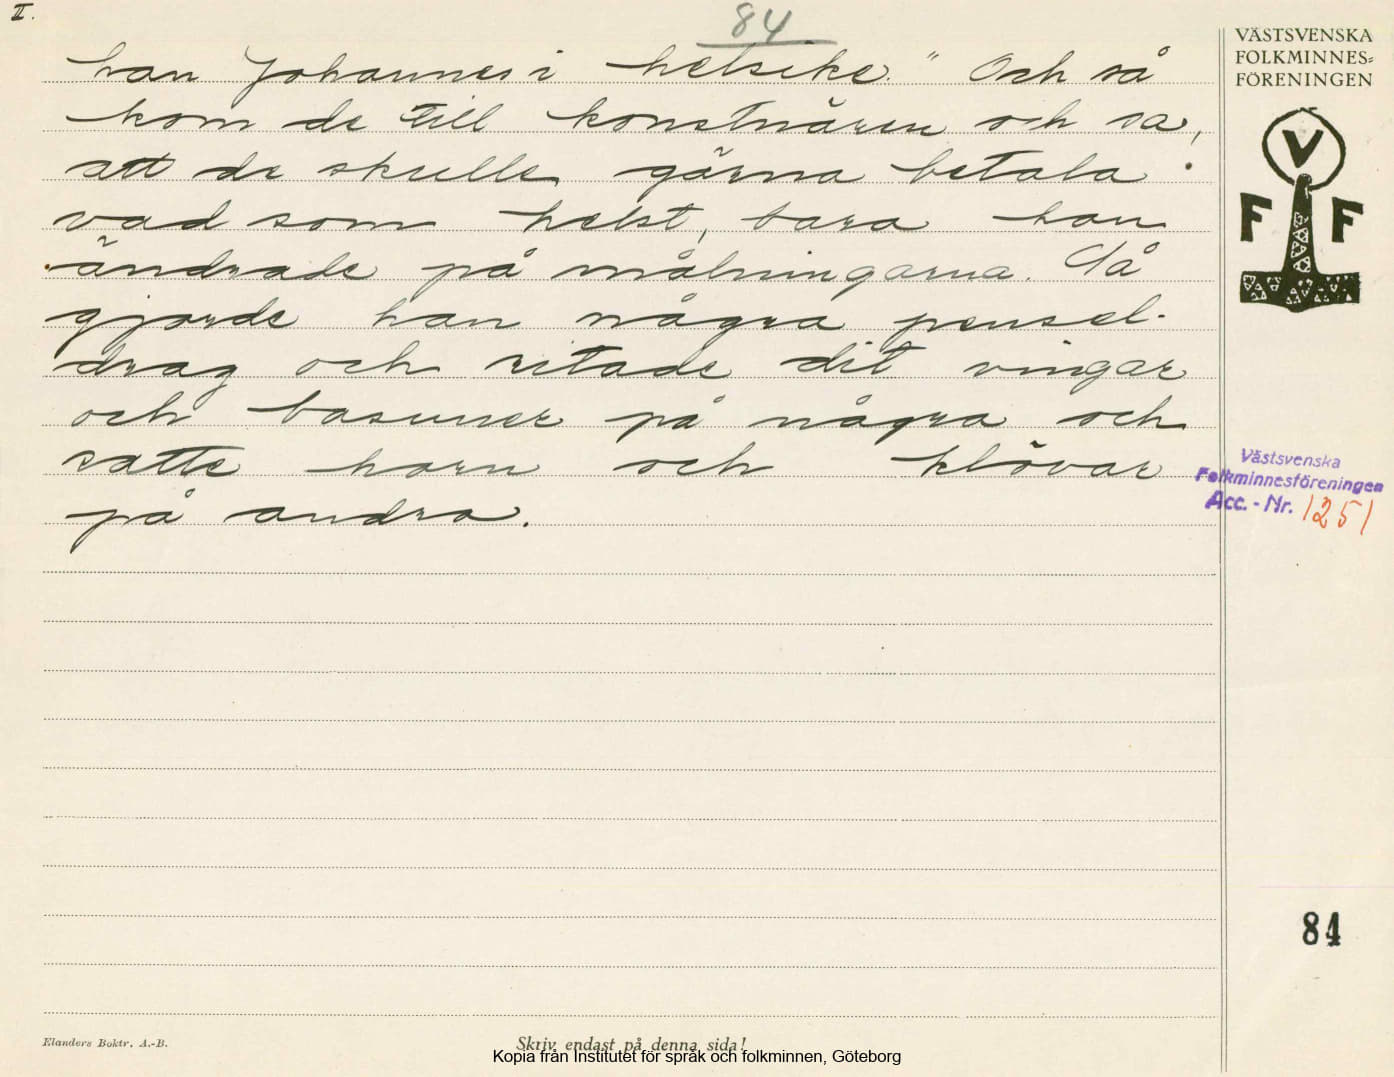 II.
84
han Johannes i helsike." Och så
kom de till konstnären och sa,
att de skulle gärna betala
vad som helst, bara han
ändrade på målningarna. Då
gjorde han några pensel-
drag och ritade dit vingar
och basuner på några och
satte horn och klövar
på andra.
VÄSTSVENSKA
FOLKMINNES-
FÖRENINGEN
V
F F
Västsvenska
Folkminnesföreningen
Acc. - Nr. 1251
84
Elanders Boktr. A.-B.
Skriv endast på denna sida!
Kopia från Institutet för språk och folkminnen, Göteborg